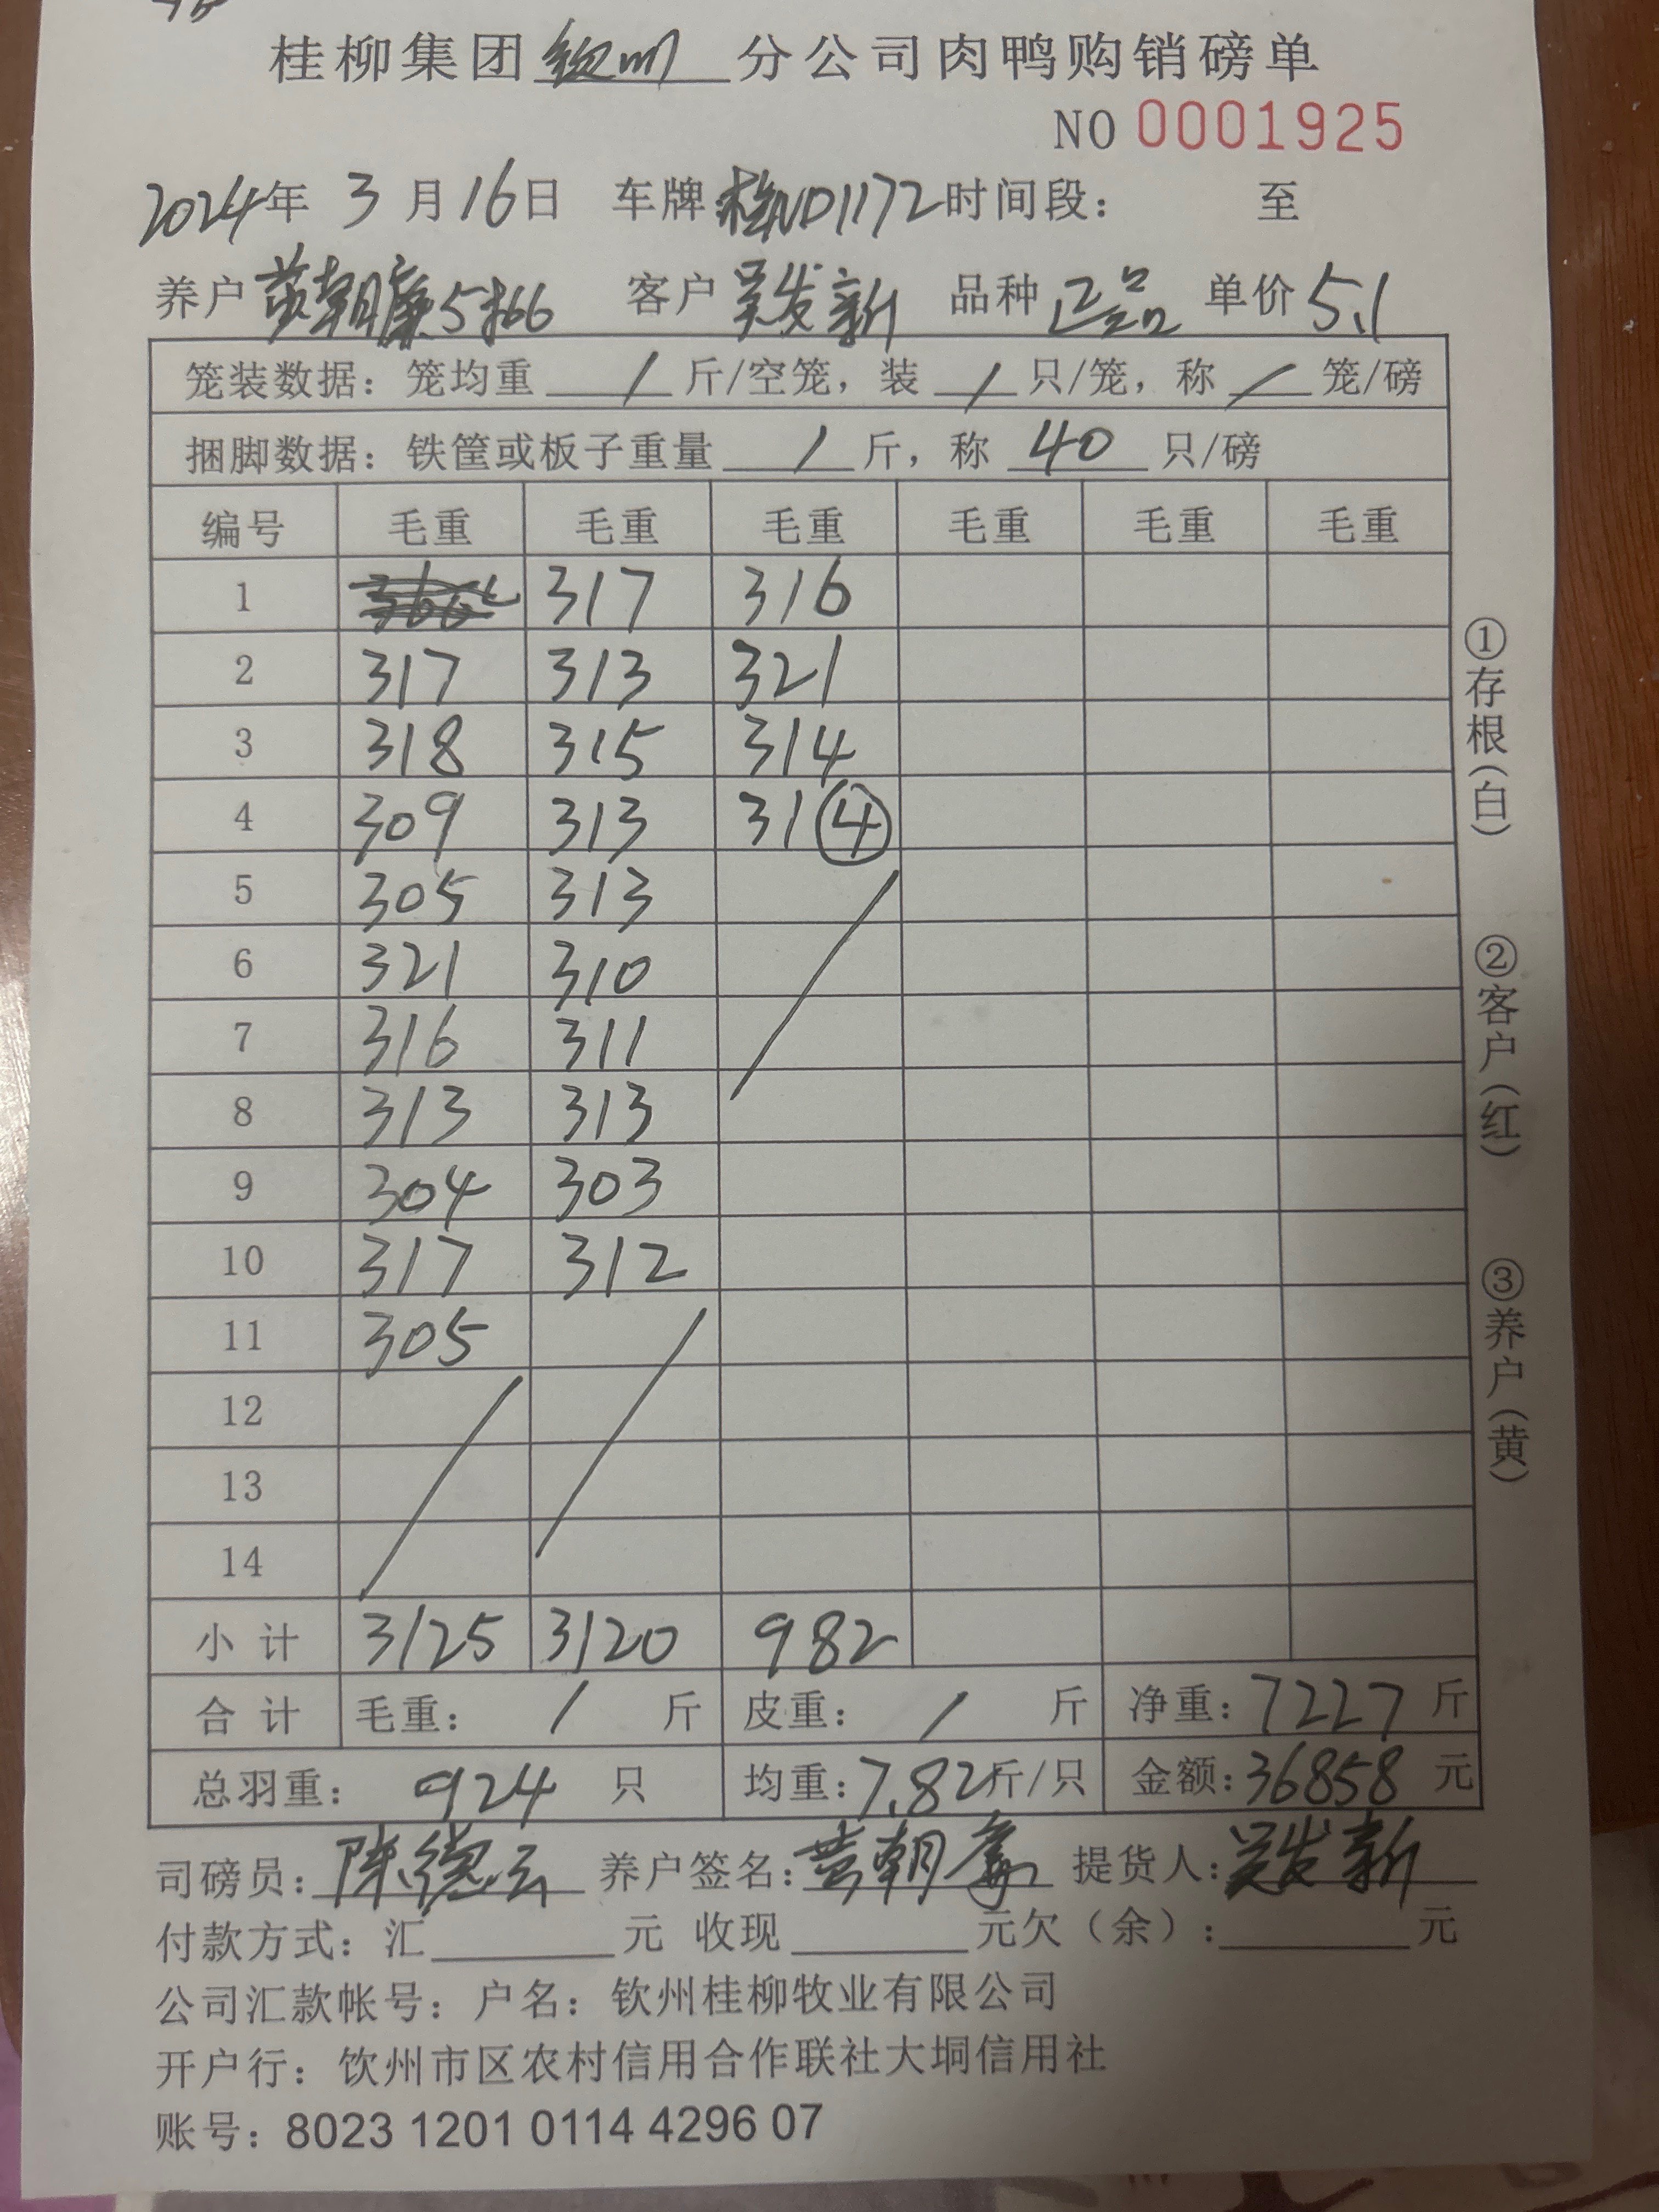 桂柳集团钦州分公司肉鸭购销磅单
NO 0001925
2024年 3月16日 车牌:桂ND1172 时间段: 至
养户 黄朝廉5批66 客户 吴发新 品种 正品 单价 5.1
笼装数据:笼均重 / 斤/空笼,装 / 只/笼,称 / 笼/磅
捆脚数据:铁筐或板子重量 / 斤,称 40 只/磅
编号 毛重 毛重 毛重 毛重 毛重 毛重
1 317 316
2 317 313 321
3 318 315 314
4 309 313 31④
5 305 313
6 321 310
7 316 311
8 313 313
9 304 303
10 317 312
11 305
12
13
14
小计 3125 3120 982
合计 毛重: / 斤 皮重: / 斤 净重:7227斤
总羽重: 924 只 均重:7.82斤/只 金额:36858元
司磅员:陈德云 养户签名:黄朝廉 提货人:吴发新
付款方式:汇 元 收现 元欠(余): 元
公司汇款帐号:户名:钦州桂柳牧业有限公司
开户行:饮州市区农村信用合作联社大垌信用社
账号:8023 1201 0114 4296 07
①存根(白) ②客户(红) ③养户(黄)